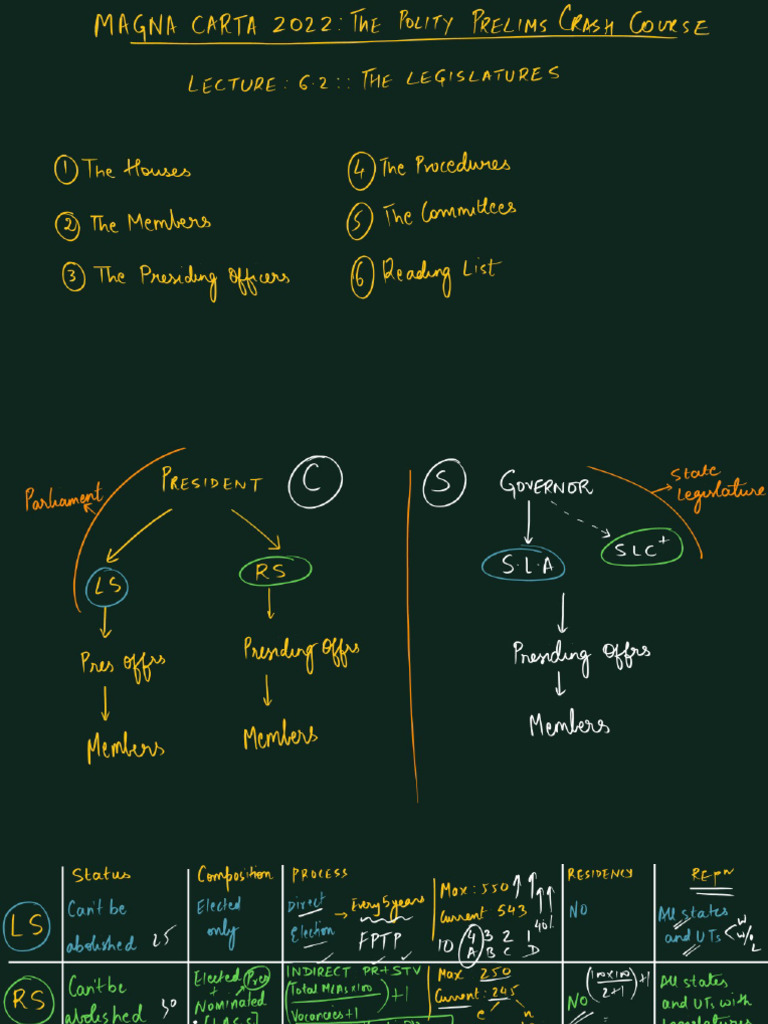 MAGNA CARTA 2022: THE POLITY PRELIMS CRASH COURSE
LECTURE: 6.2:: THE LEGISLATURES
① The Houses
② The Members
③ The Presiding Officers
④ The Procedures
⑤ The Committees
⑥ Reading List
Parliament
PRESIDENT
C
LS
RS
Pres offrs
Presiding Offrs
Members
Members
S
GOVERNOR
State
legislature
S.L.A
SLC+
Presiding Offrs
Members
Status
Composition
PROCESS
RESIDENCY
Repn
LS
Can't be
abolished 25
Elected
only
Direct
Election
Every 5 years
FPTP
Max: 550
Current 543
40%
10 4 3 2 1
A B C D
NO
All states
and UTs
w
w/o
RS
Can't be
abolished 30
Elected Pres
+
Nominated
INDIRECT PR+STV
Total MLAs x 100
Vacancies+1
+1
Max 250
Current: 245
e n
NO
100x100
2+1
+1
All states
and UTs with
legislatures